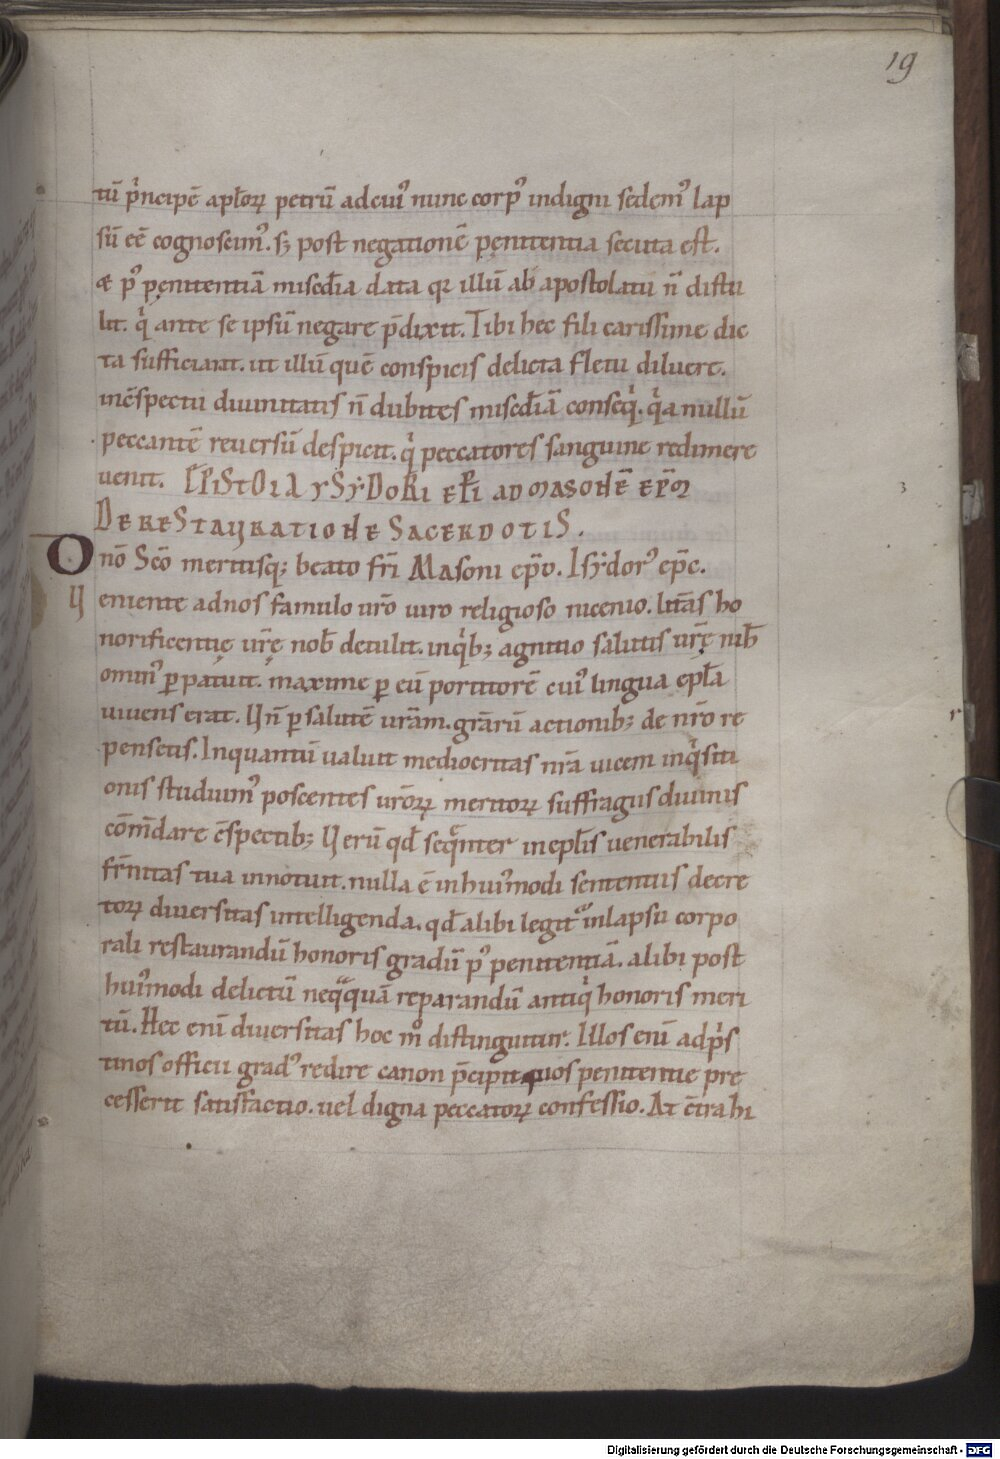 19
tū p̄ncipē apl̄oꝝ petrū adcuiꝰ nunc corpꝰ indigni sedemꝰ lap
sū eē cognoscimꝰ. sꝫ post negationē pęnitentia secuta est.
& pꝰ pęnitentiā misc̄dia data qꝛ illū ab apostolatu n̄ distu
lit. qⁱ ante se ipsū negare p̄dixit. Tibi hec fili carissime dic
ta sufficiant. ut illū quē conspicis delicta fletu diluere.
inc̄spectu diuinitatis n̄ dubites misc̄diā conseqⁱ. qⁱa nullū
peccantē reuersū despicit. qⁱ peccatores sanguine redimere
uenit. EPISTOLA YSYDORI EP̄I AD MASONĒ EP̄M
DE RESTAURATIONE SACERDOTIS.
Dnō Scō meritisqꝫ beato fr̄i Masoni ep̄o. Isẏdorꝰ ep̄c.
Veniente adnos famulo ur̄o uiro religioso nicenio. litt̄as ho
norificentię ur̄ę nob̄ detulit. inqⁱbꝫ agnitio salutis ur̄ę nih̄
ominꝰ ꝑpatuit. maxime ꝑ eū portitorē cuiꝰ lingua epl̄a
uiuens erat. Vn̄ ꝑ salutē ur̄am. gr̄arū actionibꝫ de nr̄o re
pensetis. Inquantū ualuit mediocritas nr̄a uicem inqⁱsiti
onis studuimꝰ poscentes ur̄oꝝ meritoꝝ suffragiis diuinis
cōm̄dare c̄spectibꝫ Verū qd̄ seqͣnter inepl̄is uenerabilis
fr̄nitas tua innotuit. nulla ē inhuiꝰmodi sententiis decre
toꝝ diuersitas intelligenda. qd̄ alibi legitᷣ inlapsu corpo
rali restaurandū honoris gradū pꝰ penitentiā. alibi post
huiꝰmodi delictū neqͣquā reparandū antiqⁱ honoris meri
tū. Hec eni̅ diuersitas hoc mº distinguitur. Illos eni̅ adpⁱs
tinos officii gradꝰ redire canon p̄cipit quos penitentie pre
cesserit satisfactio. uel digna peccatoꝝ confessio. At c̄tra hi
Digitalisierung gefördert durch die Deutsche Forschungsgemeinschaft - DFG